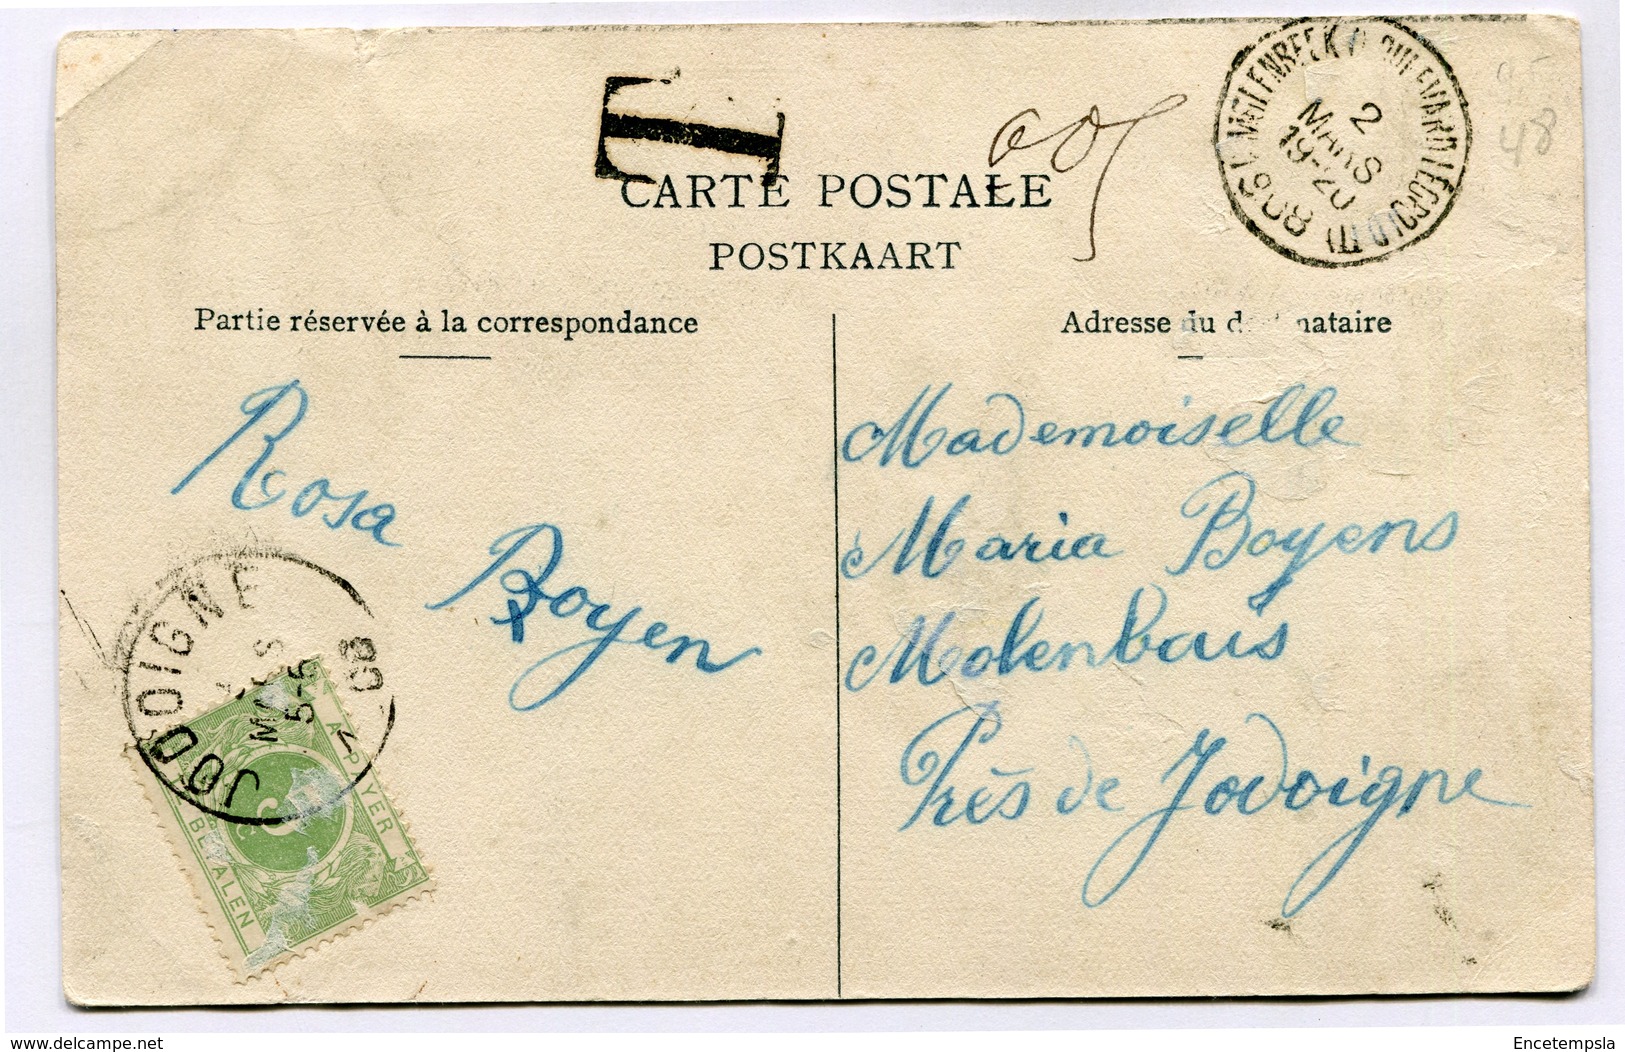 T
005
MOLENBEEK (BOULEVARD LEOPOLD II)
2
MARS
19-20
1908
48
CARTE POSTALE
POSTKAART
Partie réservée à la correspondance
Adresse du nataire
Rosa
Boyen
Mademoiselle
Maria Boyens
Molenbais
Près de Jodoigne
JODOIGNE
MARS
5-5
08
A PAYER
TE BETALEN
5
Encetempsla